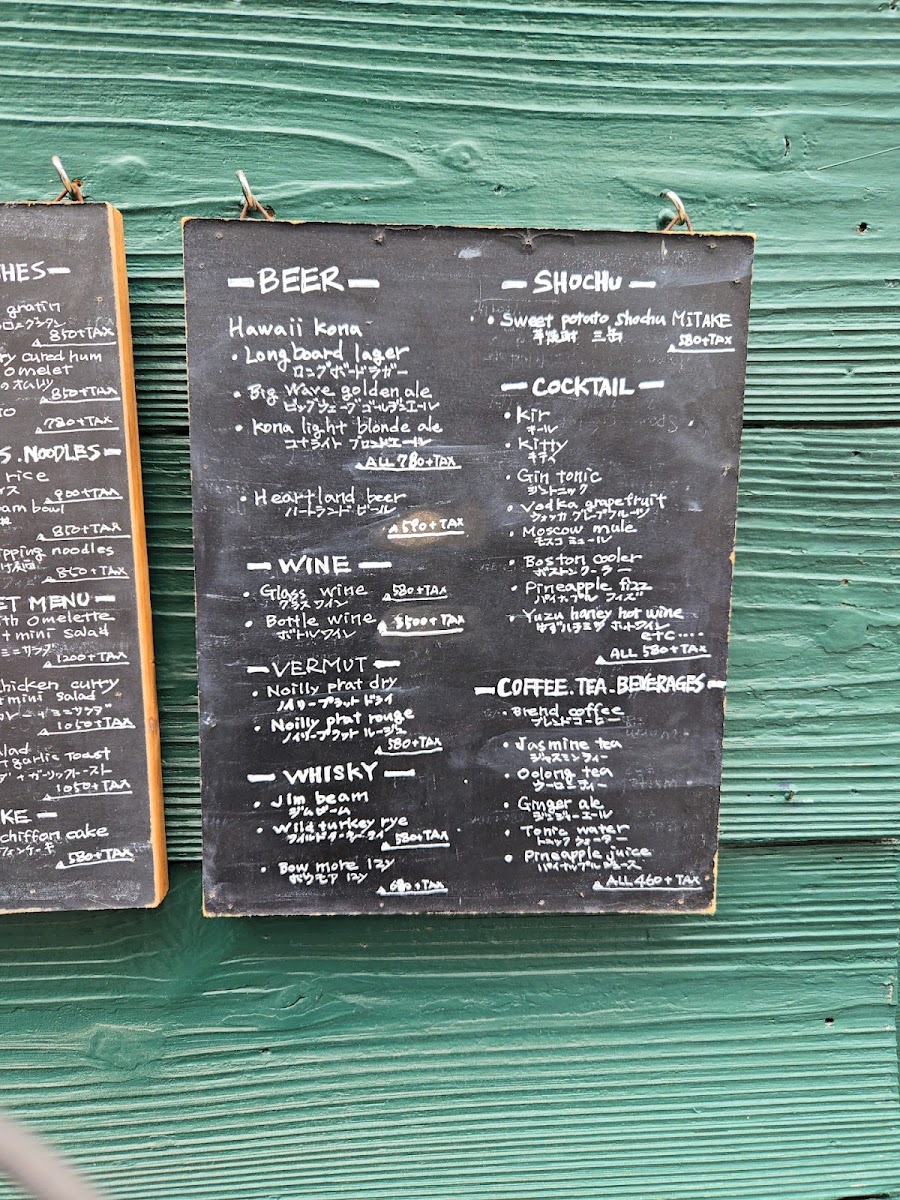 HES-
gratin
850+TAX
ry cured hum
omelet
のオムレツ
850+TAX
780+TAX
S.NOODLES-
rice
900+TAX
am bowl
850+TAX
ipping noodles
860+TAX
ET MENU -
ith omelette
+ mini salad
1200+TAX
chicken curry
mini salad
1050+TAX
alad
garlic toast
1050+TAX
KE -
chiffon cake
580+TAX
- BEER -
Hawaii kona
・Longboard lager
ロングボードラガー
・Big wave golden ale
ビッグウェーブゴールデンエール
・kona light blonde ale
コナライト ブロンドエール
ALL 780+TAX
・Heartland beer
ハートランドビール
590+TAX
- WINE -
・Glass wine 580+TAX
グラスワイン
・Bottle wine 3500+TAX
ボトルワイン
- VERMUT -
・Noilly prat dry
ノイリープラット ドライ
・Noilly prat rouge
ノイリープラット ルージュ
580+TAX
- WHISKY -
・Jim beam
ジムビーム
・Wild turkey rye
ワイルドターキーライ
580+TAX
・Bow more 12y
ボウモア 12y
680+TAX
- SHOCHU -
・Sweet potato shochu MITAKE
芋焼酎 三岳
580+TAX
- COCKTAIL -
・Kir
キール
・Kitty
キティ
・Gin tonic
ジントニック
・Vodka grapefruit
ウォッカ グレープフルーツ
・Moscow mule
モスコミュール
・Boston cooler
ボストンクーラー
・Pineapple fizz
パイナップル フィズ
・Yuzu honey hot wine
ゆずハチミツ ホットワイン
etc....
ALL 580+TAX
- COFFEE.TEA.BEVERAGES -
・Blend coffee
ブレンドコーヒー
・Jasmine tea
ジャスミンティー
・Oolong tea
ウーロンティー
・Ginger ale
ジンジャーエール
・Tonic water
トニックウォーター
・Pineapple juice
パイナップルジュース
ALL 460+TAX